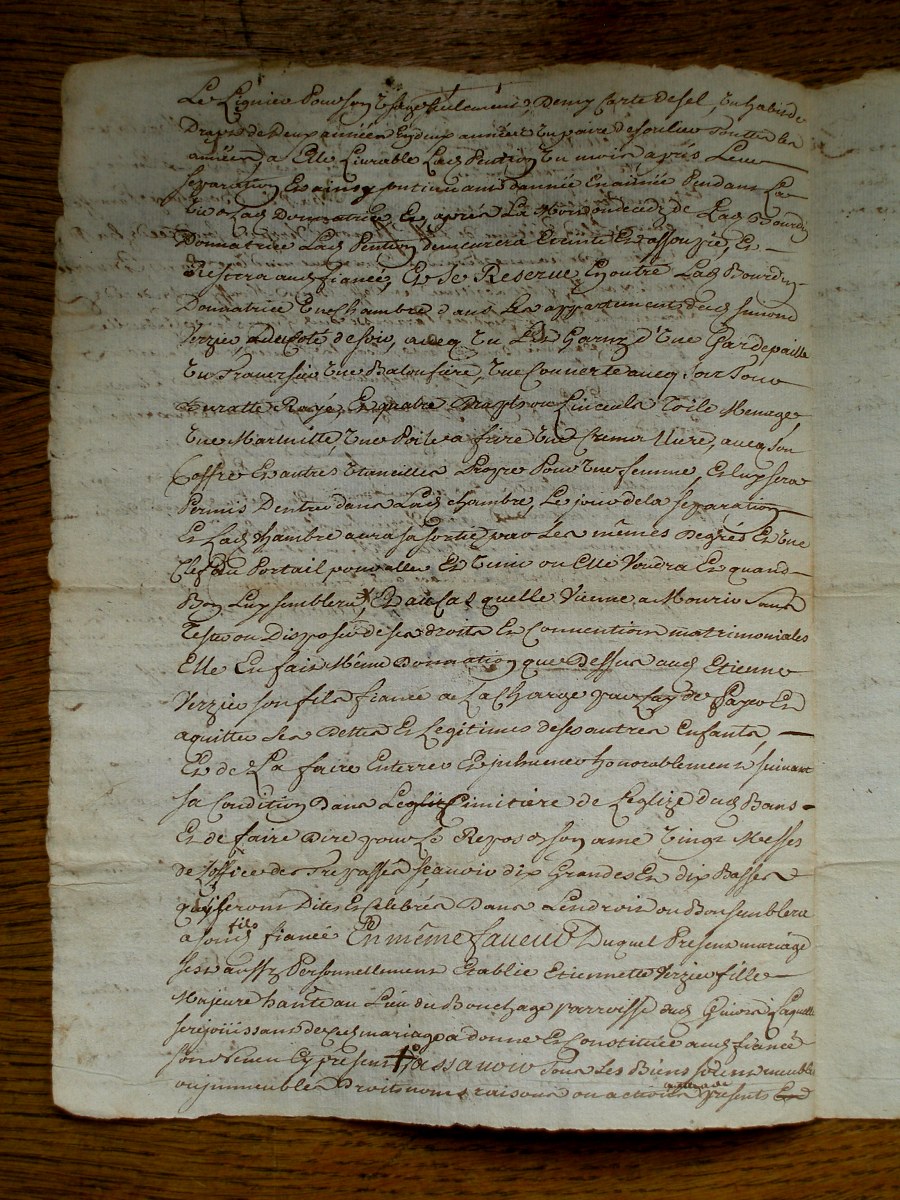 Le Lignier Pour son Usage seulement, Demy Carte de sel, Un habis de
Drapts de deux années En deux années et Une paire de soulier toutte les
années, a Elle Livrable Lad. Pention Un mois après Leur
separation Et ainsy continuant d'année En année Pendant La
Vie de Lad. Donnatrice, Et après La Mort de Lad. Bourdin
Donnatrice Lad. Pention demeurera Eteinte Et assoupie, Et
Restera aud. fiancé, Et Se Reserve En outre Lad. Bourdin
Donnatrice Une Chambre dans Les appartements dud. simond
Verzier, du Coté de soir, avecq Un Lit Garny d'Une Gardepaille
Un Traversier Une Baloufiere, Une Couverte aucq son Tour
Ratte Rayé, Et quatre Drapts ou Linceuls Toile Menage,
Une Marmitte, Une Poile a frire Une Cremor Liere, aucq son
Coffre Et autres Utancilles Propre Pour Une femme, Et luy sera
Permis D'entrer dans Lad. chambre, Le jour de la separation
Et Lad. Chambre aura sa sortie par Les mêmes Degrés Et Une
Clef du Portail pour aller Et Venir ou Elle Voudra Et quand
Bon Luy semblera, Et au Cas quelle Vienne a Mourir sans
Tester ou Disposer de ses droits Et Conventions matrimoniales
Elle En fait Même Donnation que Dessus aud. Etienne
Verzier son fils fiancé a La Charge par Luy de Payer Et
aquitter ses dettes Et Legitimes de ses autres Enfants,
Et de La faire Enterrer Et inhumer honorablement suivant
sa Condition Dans Cimitière de L'eglize dud. Bans
Et de faire dire pour Le Repos de son ame Vingt Messes
de L'office des Trepassés, sçavoir dix Grandes Et dix Basses
qui seront Dites Et Celebrés Dans L'endroit ou Bon semblera
a sond. fils fiancé En même faveur Duquel Present mariage
sest aussy Personnellement Etablie Etiennette Verzier fille
Majeure habtte au Lieu du Bouchage parroisse dud. Givors Laquelle
se rejouissant dud. mariage a donné Et Constituée aud. fiancé
son Neveu Cy present assavoir Tous Les Biens meubles
ou immeubles Droits noms raisons ou actions presents Et